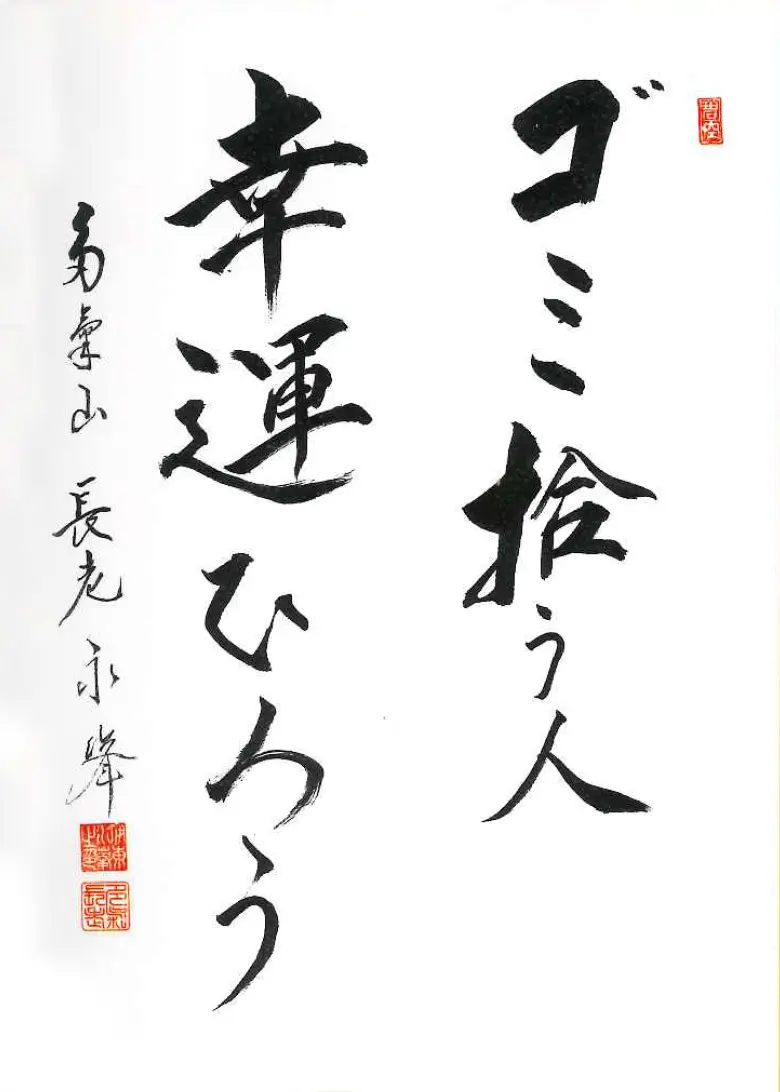 ゴミ拾う人
幸運ひろう
多氣山 長老 永擧